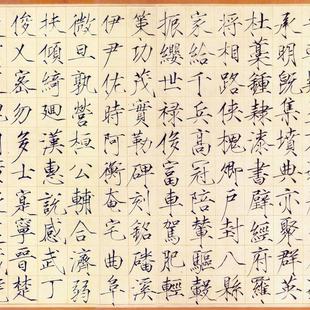 承明既集墳典亦聚群英
杜藁鍾隸漆書壁經府羅
將相路俠槐卿戶封八縣
家給千兵高冠陪輦驅轂
振纓世祿侈富車駕肥輕
策功茂實勒碑刻銘磻溪
伊尹佐時阿衡奄宅曲阜
微旦孰營桓公輔合濟弱
扶傾綺廻漢惠說感武丁
俊乂密勿多士寔寧晉楚